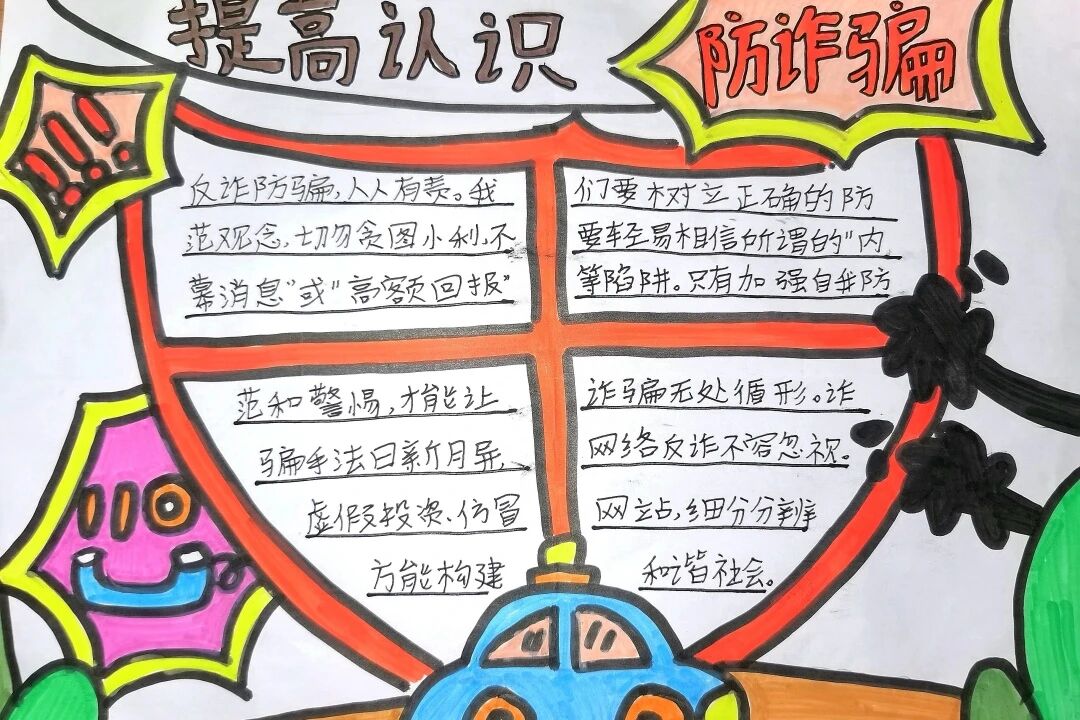 提高认识
防诈骗
!!!
反诈防骗,人人有责。我们要树立正确的防
范观念,切勿贪图小利,不要轻易相信所谓的"内
幕消息"或"高额回报"等陷阱。只有加强自我防
范和警惕,才能让诈骗无处循形。诈
骗手法日新月异、网络反诈不容忽视。
虚假投资、仿冒网站,细分分辨
方能构建和谐社会。
110